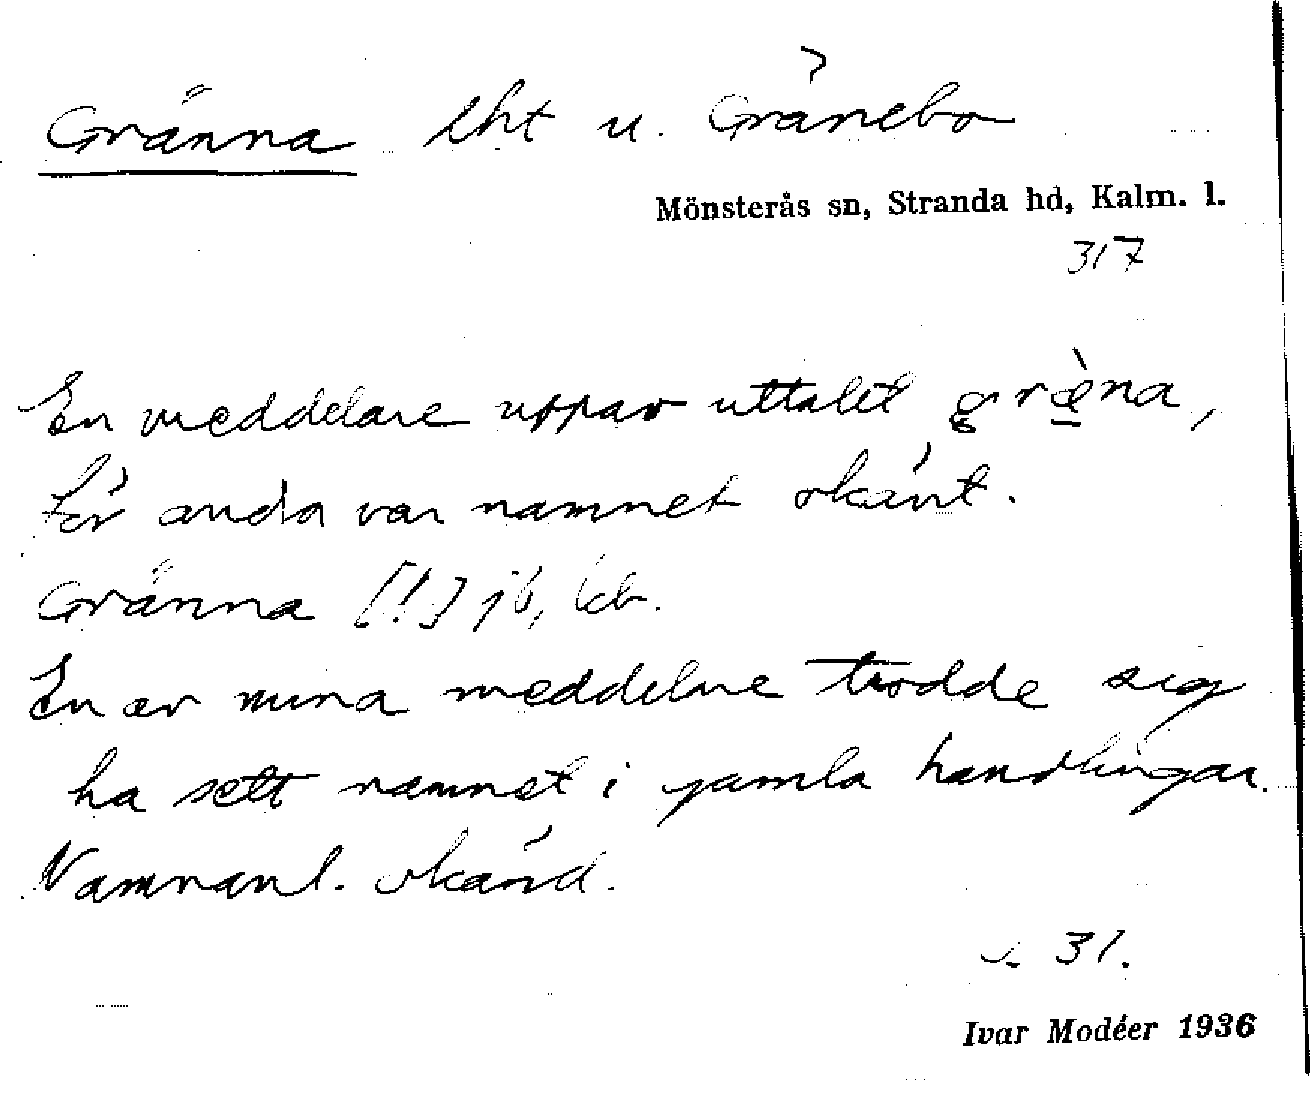 Gränna lht u. Gränebo
Mönsterås sn, Stranda hd, Kalm. l.
317
En meddelare uppgav uttalet græ̀na,
för andra var namnet okänt.
Gränna [!] jb,
En av mina meddelare trodde sig
ha sett namnet i gamla handlingar.
Namnanl. okänd.
31.
Ivar Modéer 1936